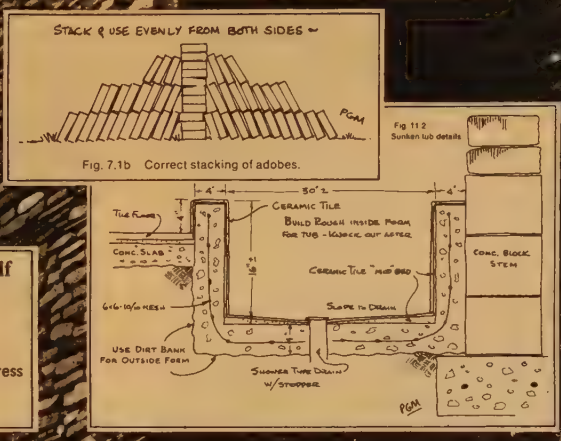 STACK & USE EVENLY FROM BOTH SIDES ~
PGM
Fig. 7.1b Correct stacking of adobes.
Fig. 11.2
Sunken tub details
4"
30" ±
4"
CERAMIC TILE
BUILD ROUGH INSIDE FORM
FOR TUB - KNOCK OUT LATER
TILE FLOOR
4"
CONC. SLAB
16" ±
CERAMIC TILE "MUD" BED
CONC. BLOCK
STEM
6x6-10/10 MESH
SLOPE TO DRAIN
USE DIRT BANK
FOR OUTSIDE FORM
SHOWER TYPE DRAIN
W/STOPPER
PGM
lf
ress